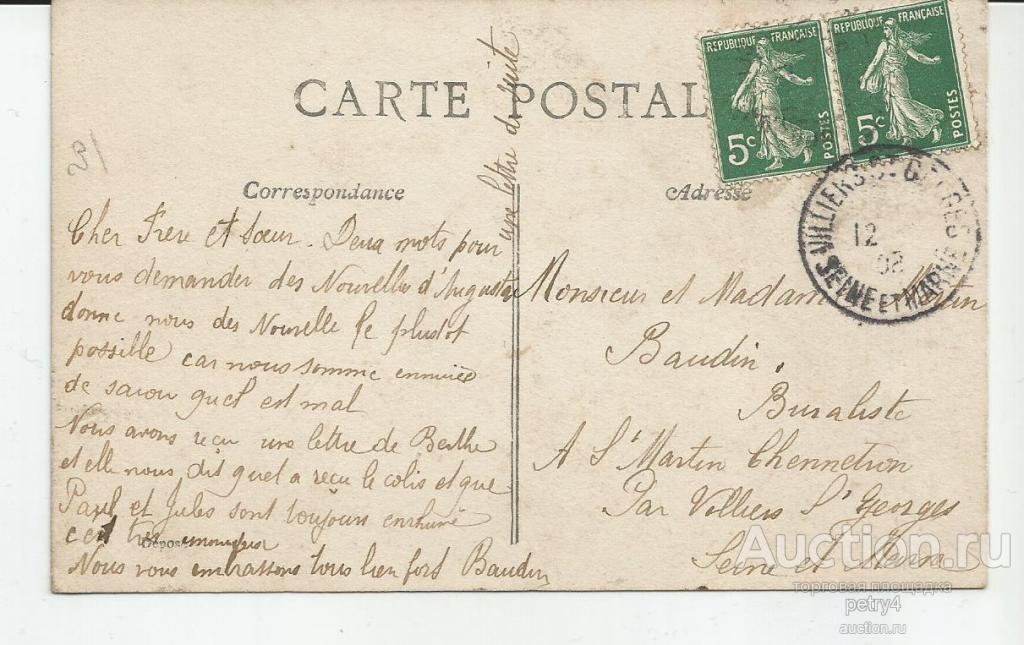 CARTE POSTALE
RÉPUBLIQUE FRANÇAISE
5c POSTES
RÉPUBLIQUE FRANÇAISE
5c POSTES
VILLIERS ST GEORGES
12
02
SEINE ET MARNE
Correspondance
Adresse
une lettre de suite
Cher Frere et Sœur. Deux mots pour
vous demander des Nouvelles d'Augusta
donne nous des Nouvelle le plutot
possible car nous somme ennuiée
de savoir quel est mal
Nous avons reçu une lettre de Berthe
et elle nous dit quel a reçu le colis et que
Paul et Jules sont toujours enrhumé
c'est tres
Nous vous embrassons tous bien fort Baudin
Monsieur et Madame Martin
Baudin.
Buraliste
A St Martin Chennetron
Par Villiers St Georges
Seine et Marne
Auction.ru
торговая площадка
petry4
auction.ru